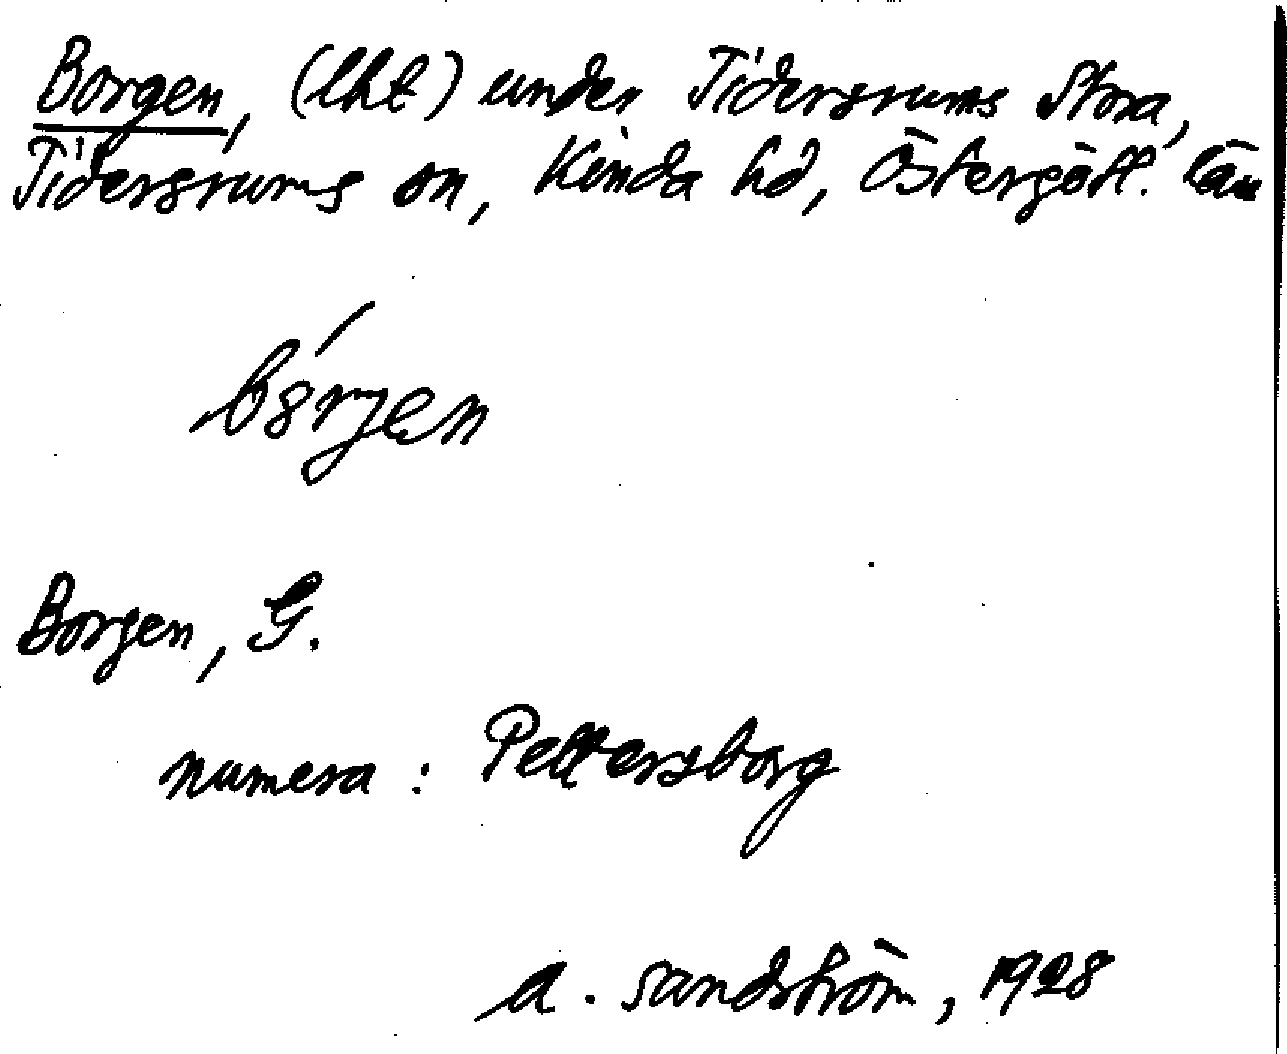 Borgen, (lht) under Tidersrums Stora,
Tidersrums sn, Kinda hd, Östergötl. län
bórgen
Borgen, G.
numera: Pettersborg
A. Sandström, 1928